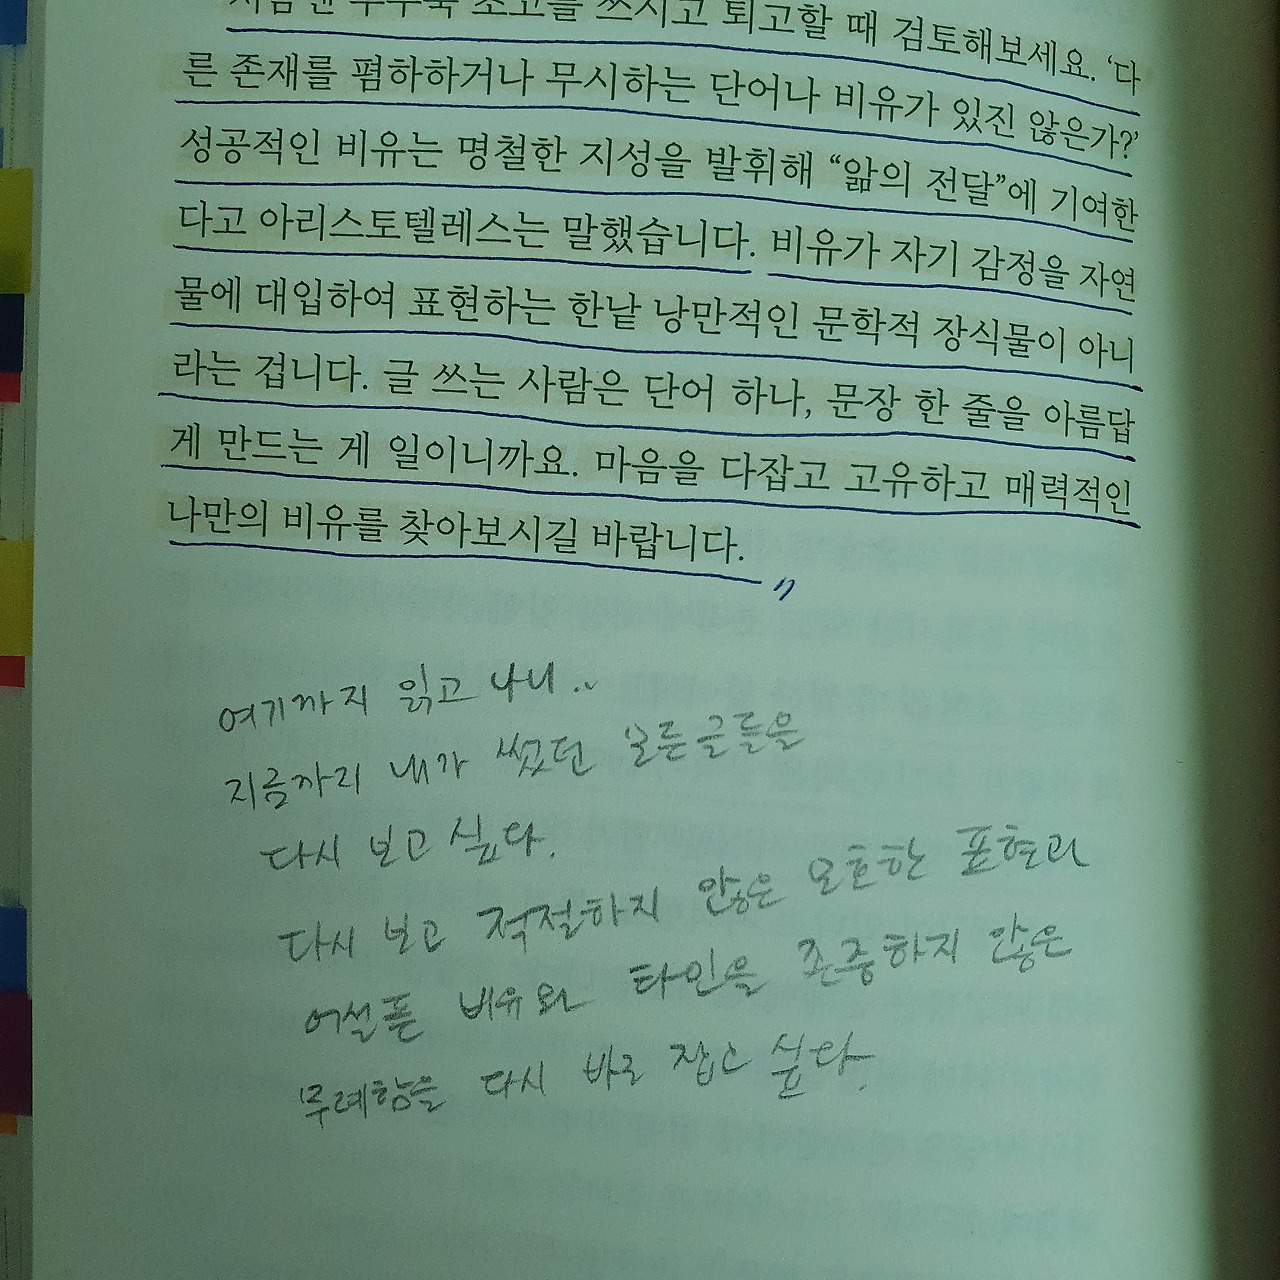 초고를 쓰시고 퇴고할 때 검토해보세요. ‘다
른 존재를 폄하하거나 무시하는 단어나 비유가 있진 않은가?’
성공적인 비유는 명철한 지성을 발휘해 “앎의 전달”에 기여한
다고 아리스토텔레스는 말했습니다. 비유가 자기 감정을 자연
물에 대입하여 표현하는 한낱 낭만적인 문학적 장식물이 아니
라는 겁니다. 글 쓰는 사람은 단어 하나, 문장 한 줄을 아름답
게 만드는 게 일이니까요. 마음을 다잡고 고유하고 매력적인
나만의 비유를 찾아보시길 바랍니다.
여기까지 읽고 나니..
지금까지 내가 썼던 모든글들을
다시 보고 싶다.
다시 보고 적절하지 않은 모호한 표현과
어설픈 비유와 타인을 존중하지 않은
무례함을 다시 바로 잡고 싶다.